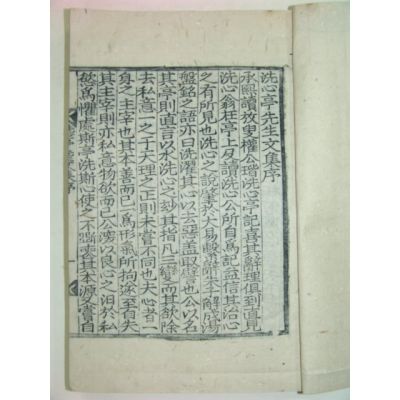 洗心亭先生文集序
承熙讀放叟權公瑎洗心亭記喜其辭理俱到直見
洗心翁在亭上及讀洗心公所自爲記益信其治心
之有所見也洗心之說肇於大易繫辭朱子解成湯
盤銘之語亦曰洗濯其心以去惡盖取慮也公以名
其亭則直言以水洗心之妙其指凡三變而其欲除
去私意一之乎大理之正則未嘗不同也夫心者一
身之主宰也其本善而已一爲形氣所拘遂至自失
其主宰則亦私意物欲而已公滂以良心之汨於私
慾爲懼處斯亭洗斯心使之不
其本源又嘗自